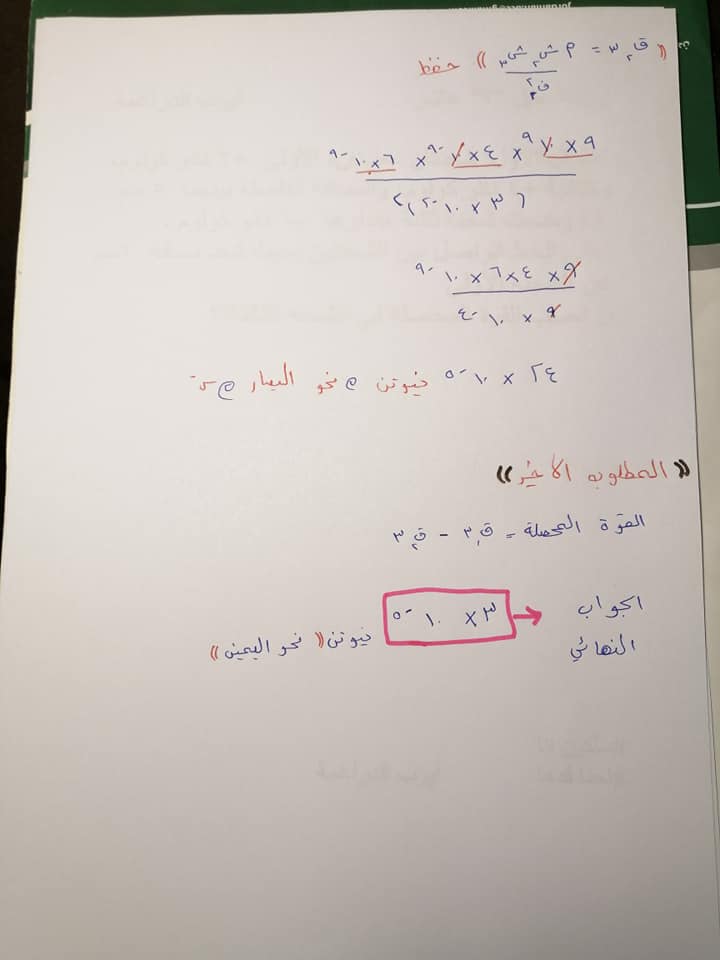 (( ق٢ ٣ = م ش٢ ش٣ )) حفظ
ف٢
٩ × ١٠ ٩ × ٤ × ١٠ -٩ × ٦ × ١٠ -٩
( ٣ × ١٠ -٢ )٢
٩ × ٤ × ٦ × ١٠ -٩
٩ × ١٠ -٤
٢٤ × ١٠ -٥ نيوتن نحو اليسار
(( المطلوب الأخير ))
القوة المحصلة = ق١ ٣ - ق٢ ٣
الجواب → ٣ × ١٠ -٥
النهائي
نيوتن (( نحو اليمين ))